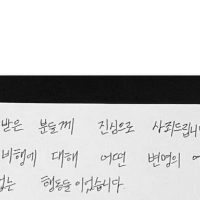 받은 분들께 진심으로 사죄드립니다
비행에 대해 어떤 변명의 여
없는 행동들이었습니다